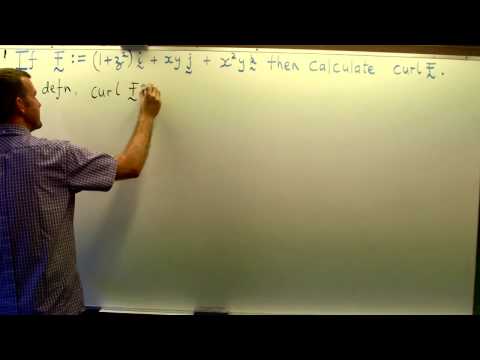 If F := (1+z²) i + xy j + x²y k then calculate curl F .
defn, curl F